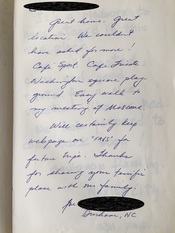 Great home. Great
location. We couldn't
have asked for more!
Cafe Sport. Cafe Trieste
Washington square play
ground. Easy walk to
my meeting at Moscone.
Will certainly keep
webpage on "favs" for
future trips. Thanks
for sharing your terrific
place with our family.
Durham, NC